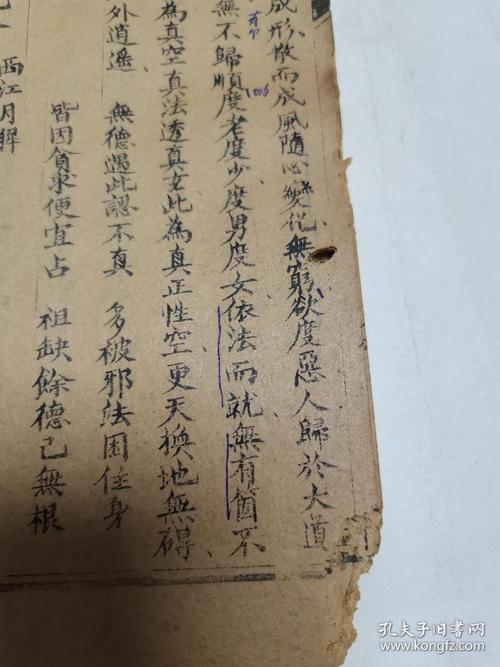 成形散而成風隨心變化無窮欲度惡人歸於大道
無不歸順度老度少度男度女依法而就無有箇不
為真空真法透真玄此為真正性空更天換地無碍
外逍遥 無德遇此認不真 多被邪法困住身
皆因貪求便宜占 祖缺餘德己無根
西江月
孔夫子旧书网
kongfz.com